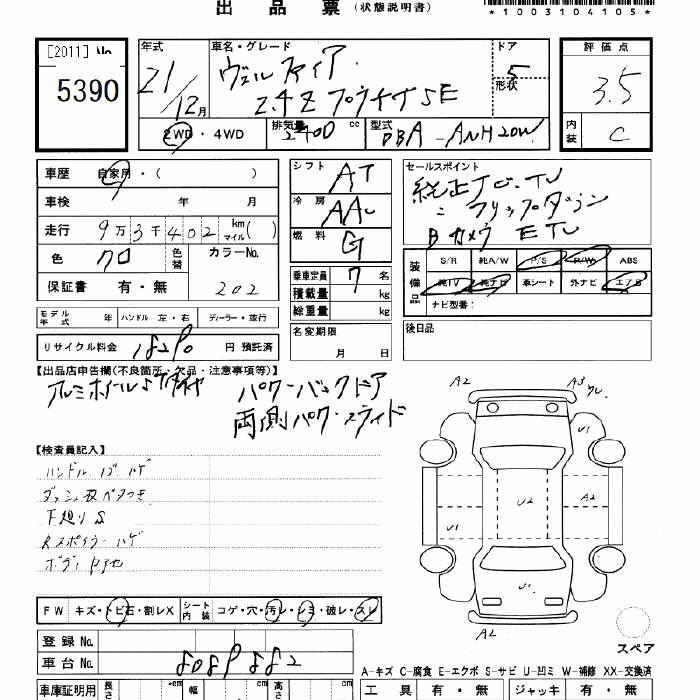 出品票 (状態説明書)
*1003104105*
[2011] No. 5390
年式 21/12月
車名・グレード ヴェルファイア
2.4Z プラチナSE
ドア 5
形状
評価点 3.5
内装 C
2WD・4WD
排気量 2400 cc
型式 DBA-ANH20W
車歴 自家用・( )
車検 年 月
走行 9万3千402 km マイル( )
色 クロ 色替
カラーNo. 202
保証書 有・無
シフト AT
冷房 AAC
燃料 G
乗車定員 7 名
積載量 kg
総重量 kg
名変期限
月 日
セールスポイント
純正
フリップダウン
Bカメラ
装備品
S/R 純A/W P/S P/W ABS
純TV 純ナビ 車シート 外ナビ エアB
ナビ型番:
後日品
モデル年式 年 ハンドル 左・右 ディーラー・並行
リサイクル料金 円 預託済
【出品店申告欄(不良箇所・欠品・注意事項等)】
アルミホイール
パワーバックドア
両側パワースライド
【検査員記入】
ハンドル ハゲ
ベタつき
下廻りS
Rスポイラー ハゲ
ボディ
FW キズ・トビ石・割レX シート内装 コゲ・穴・汚レ・シミ・破レ・スレ
登録 No.
車台 No. 8089882
車庫証明用 長さ cm 幅 cm 高さ cm
A2
A3
U1
U2
A2
U1
A2
スペア
A-キズ C-腐食 E-エクボ S-サビ U-凹ミ W-補修 XX-交換済
工具 有・無 ジャッキ 有・無